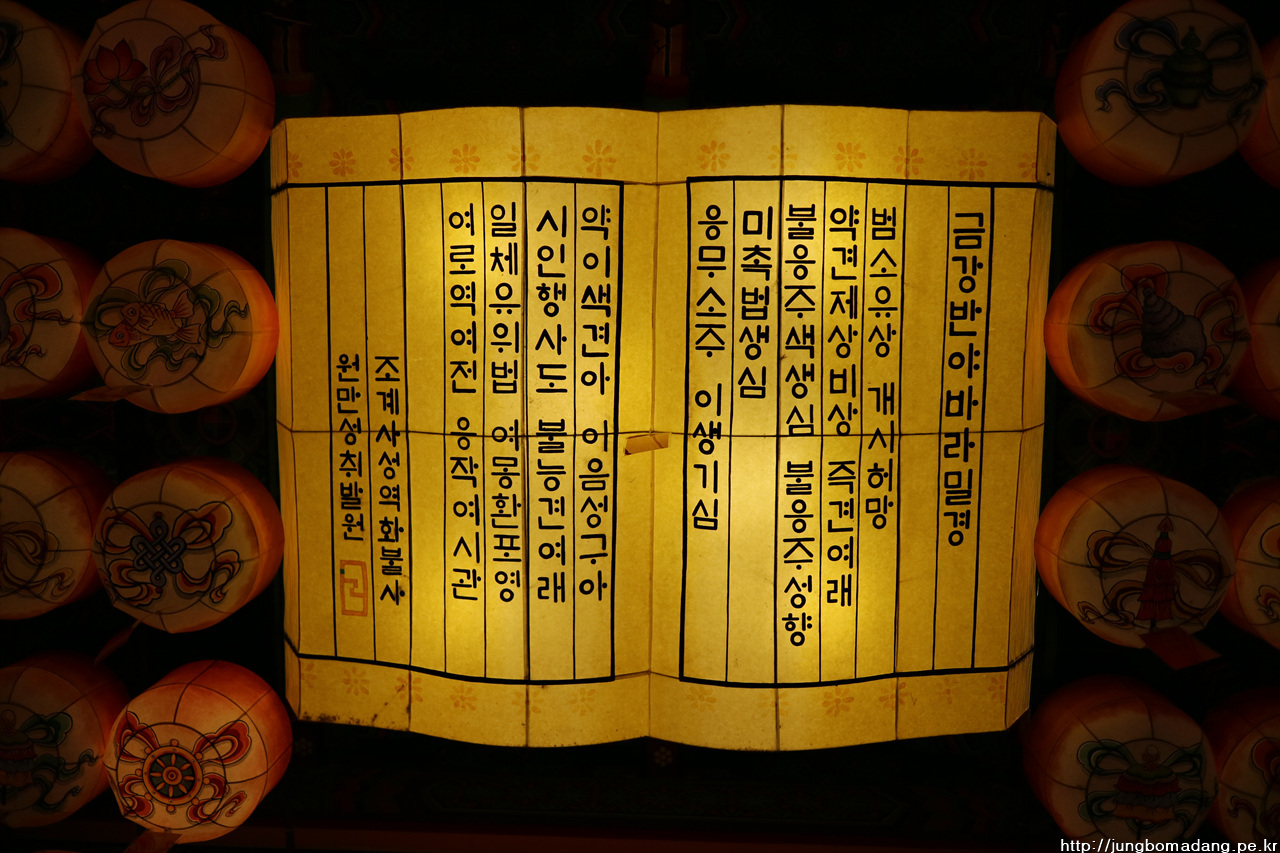 금강반야바라밀경
범소유상 개시허망
약견제상비상 즉견여래
불응주색생심 불응주성향
미촉법생심
응무소주 이생기심
약이색견아 이음성구아
시인행사도 불능견여래
일체유위법 여몽환포영
여로역여전 응작여시관
조계사성역화불사
원만성취발원
http://jungbomadang.pe.kr